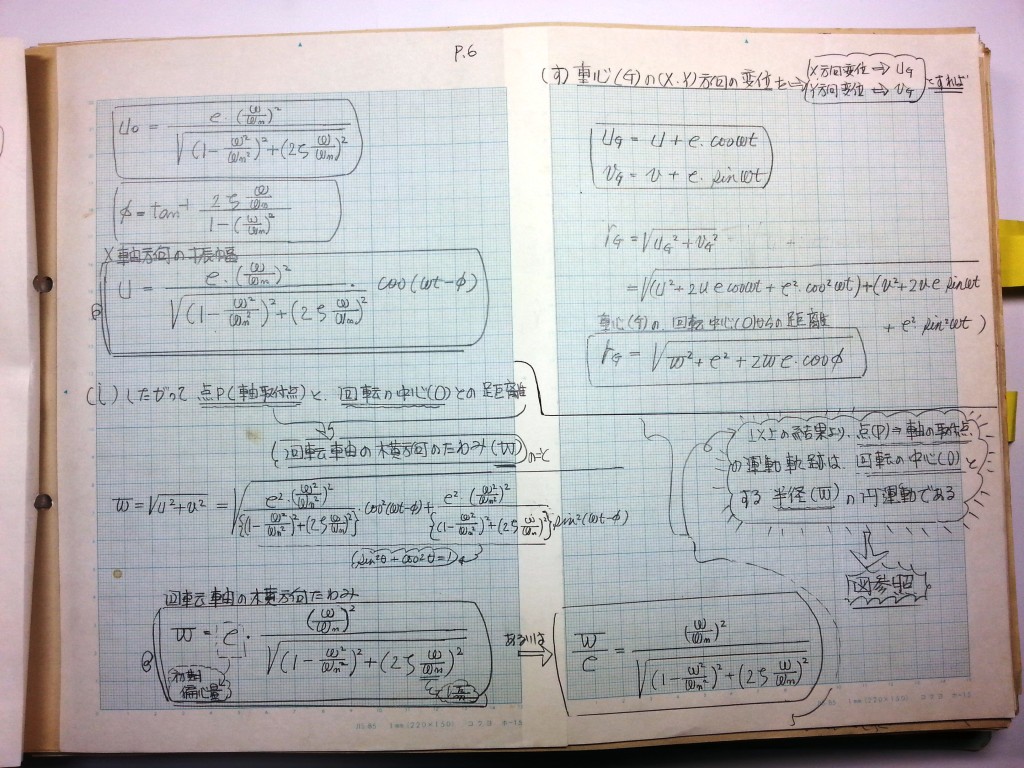 P.6
u₀ = e·(ω/ωn)² / √((1-ω²/ωn²)²+(2ζ ω/ωn)²)
φ = tan⁻¹ 2ζ ω/ωn / 1-(ω/ωn)²
X軸方向の振幅
u = e·(ω/ωn)² / √((1-ω²/ωn²)²+(2ζ ω/ωn)²) · cos(ωt-φ)
(i) したがって 点P(軸取付点)と、回転の中心(O)との距離
回転車由の横方向のたわみ(w)のこと
w = √u²+v² = √ e²·(ω/ωn)² / {(1-ω²/ωn²)²+(2ζ ω/ωn)²} · cos²(ωt-φ) + e²·(ω/ωn)² / {(1-ω²/ωn²)²+(2ζ ω/ωn)²} sin²(ωt-φ)
(sin²θ + cos²θ = 1)
回転車由の横方向たわみ
w = e · (ω/ωn)² / √((1-ω²/ωn²)²+(2ζ ω/ωn)²)
初期偏心量
あるいは ⇒
w/e = (ω/ωn)² / √((1-ω²/ωn²)²+(2ζ ω/ωn)²)
重心(G)の(X.Y)方向の変位を ⇒ X方向変位 ⇒ u_G
Y方向変位 ⇒ v_G とすれば
u_G = u + e·cosωt
v_G = v + e·sinωt
r_G = √u_G² + v_G²
= √(u²+2u e cosωt + e²·cos²ωt)+(v²+2v e sinωt
+ e² sin²ωt)
重心(G)の、回転中心(O)からの距離
r_G = √w² + e² + 2we·cosφ
以上の結果より、点(P)⇒軸の取付点
の運動軌跡は、回転の中心(O)と
する 半径(w)の円運動である
図参照
1mm(220×150) コクヨ ホ-15
1mm(220×150) コクヨ ホ-15